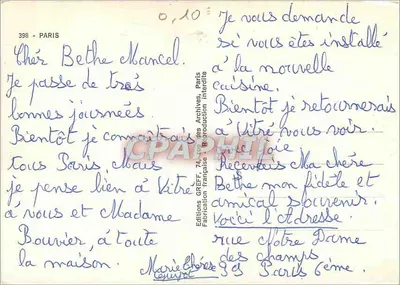 398 - PARIS
0,10
Chér Bethe Mancel.
Je passe de trés
bonnes journées.
Bientôt je connaîtrais
tous Paris Mais
je pense bien à Vitré
à vous et Madame
Bouvier, à toute
la maison.
Marie Thérèse
Editions GREFF, 74, des Archives, Paris
Fabrication française - Reproduction interdite
CPAPHIL
Je vous demande
si vous êtes installé
à la nouvelle
cuisine.
Bientôt je retournerais
à Vitré vous voir.
joie
Recevais Ma chère
Bethe mon fidèle et
amical souvenir.
Voici l'Adresse.
rue Notre Dame
des champs
Paris 6ème.